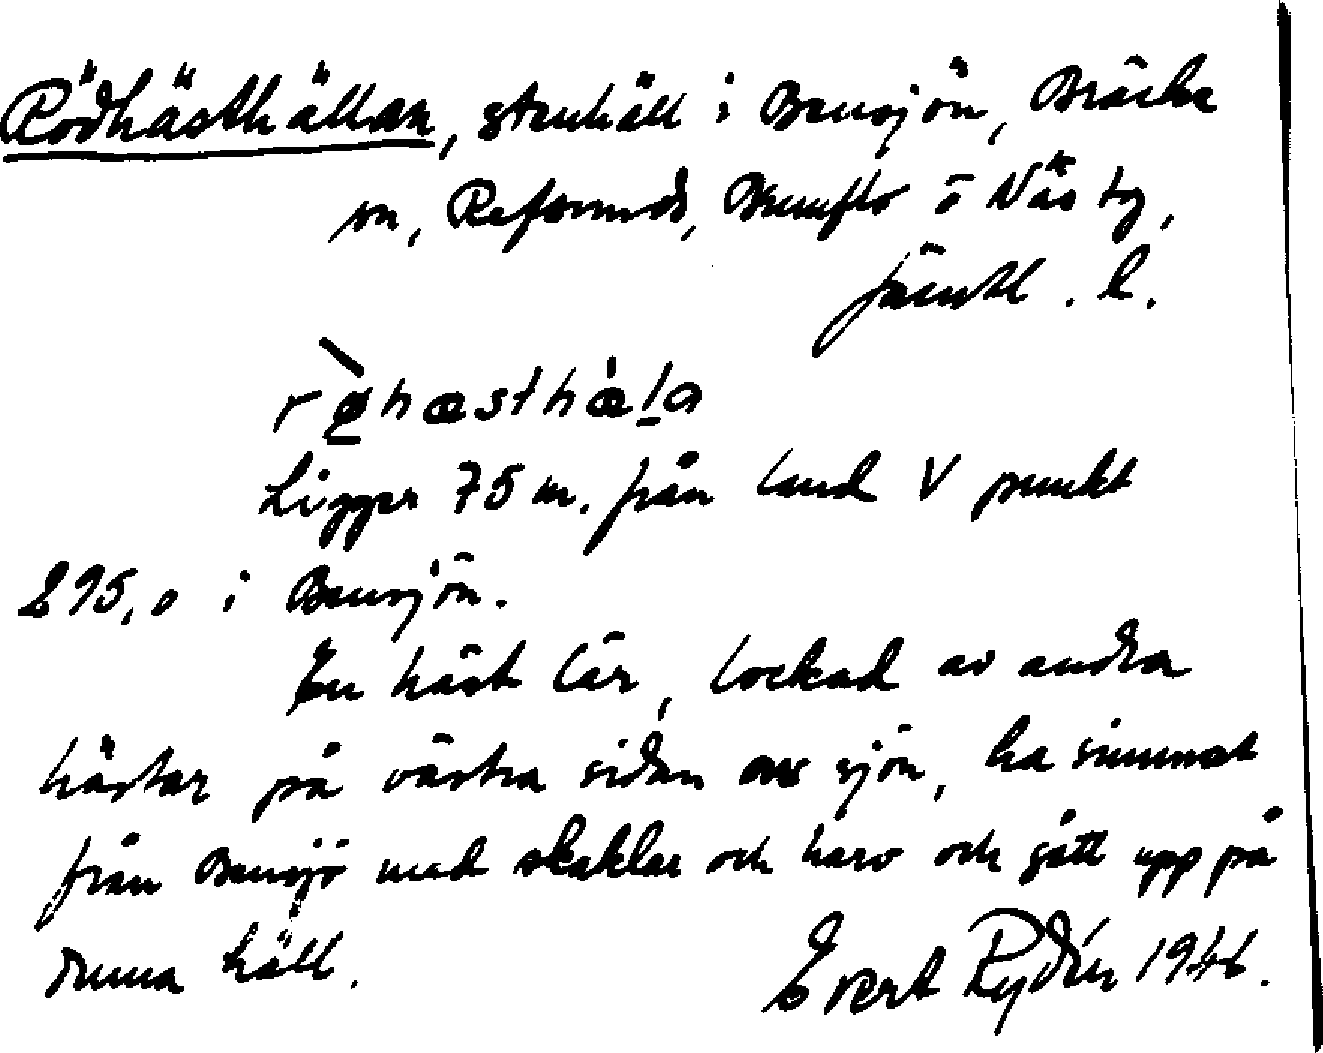 Rödhästhällan, stenhäll i Bensjön, Bräcke
sn, Refsunds, Brunflo o Näs tg,
Jämtl. l.
rø̀hæsthæ̀la
Ligger 75 m. från land V punkt
295,0 i Bensjön.
En häst lär, lockad av andra
hästar på västra sidan av sjön, ha simmat
från Bensjö med skaklar och harv och gått upp på
denna häll.
Evert Rydén 1946.